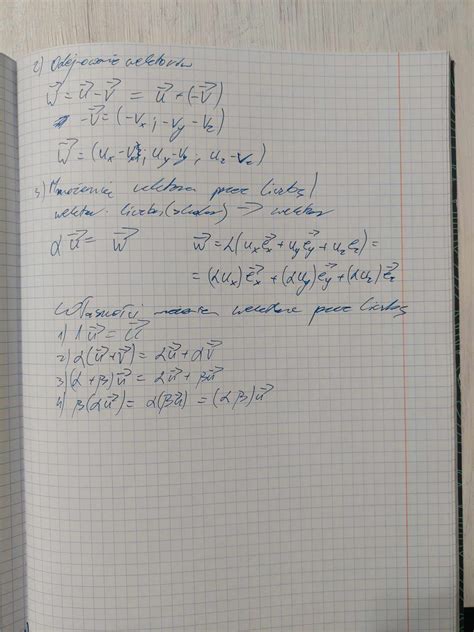 2) Odejmowanie wektorów
w⃗ = u⃗ - v⃗ = u⃗ + (-v⃗)
-v⃗ = (-vₓ ; -v_y -v_z)
w⃗ = (uₓ-vₓ; u_y-v_y ; u_z-v_z)
3) Mnożenie wektora przez liczbę
wektor · liczba (skalar) → wektor
αu⃗ = w⃗ w⃗ = α(uₓe⃗ₓ + u_ye⃗_y + u_ze⃗_z) =
= (αuₓ)e⃗ₓ + (αu_y)e⃗_y + (αu_z)e⃗_z
Własności wektora przez liczbę
1) 1u⃗ = u⃗
2) α(u⃗ + v⃗) = αu⃗ + αv⃗
3) (α + β)u⃗ = αu⃗ + βu⃗
4) β(αu⃗) = α(βu⃗) = (αβ)u⃗